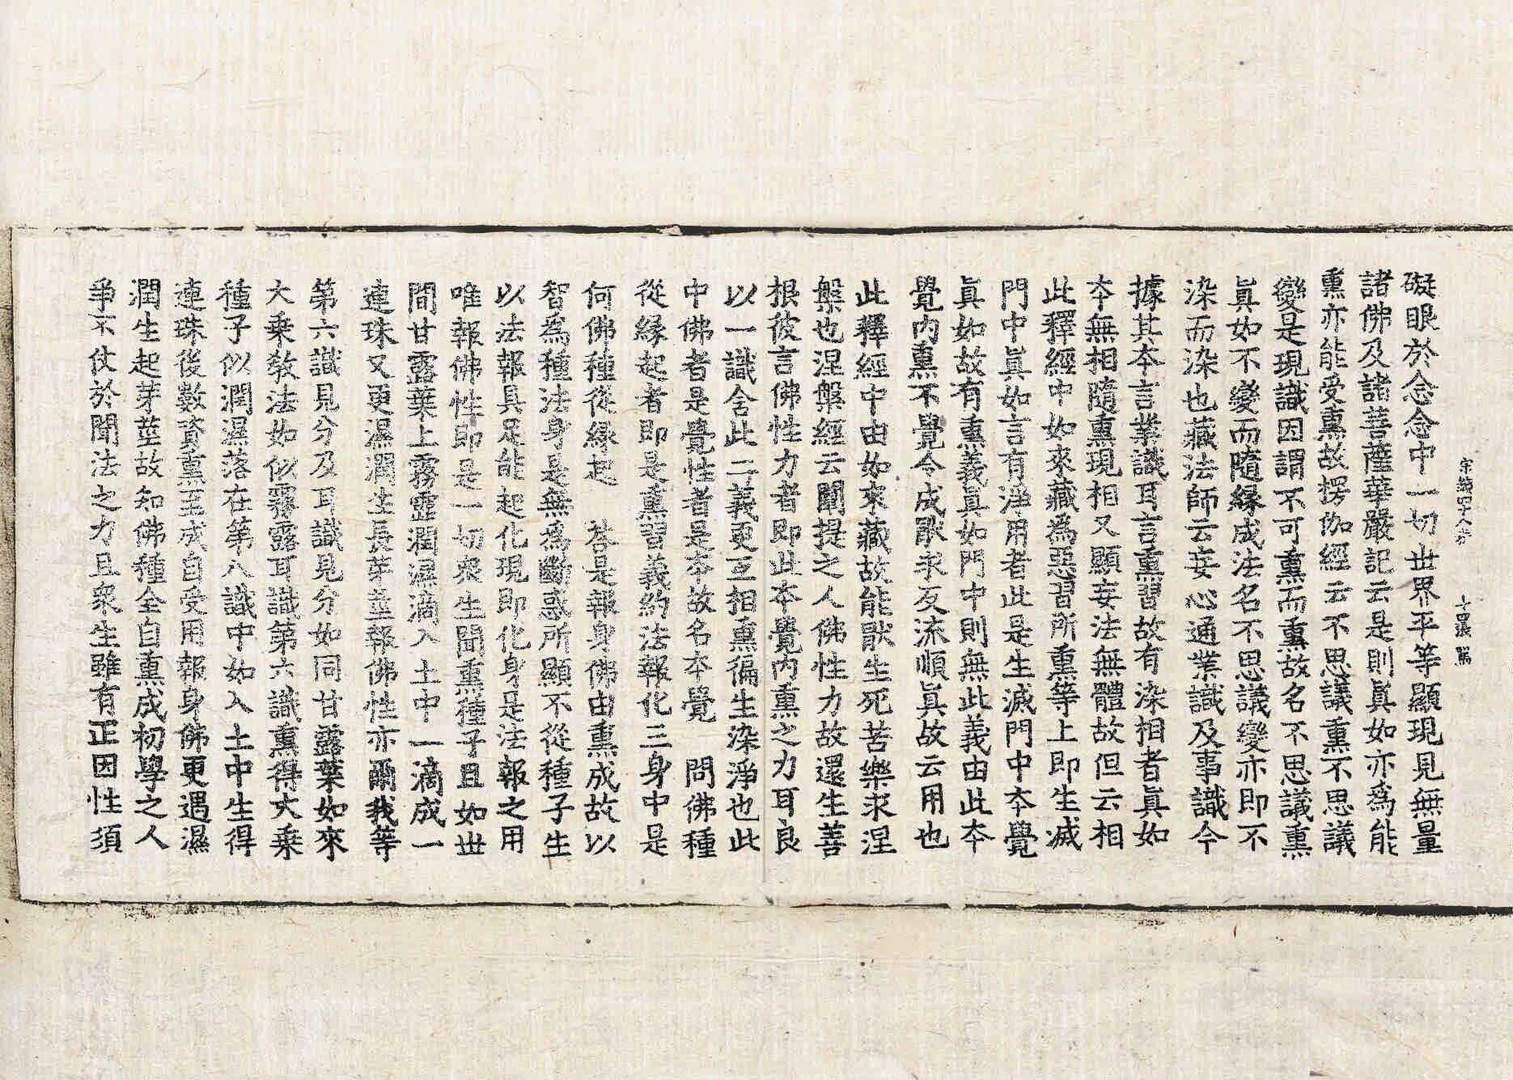 宗鏡四十八卷 十四張 駕
礙眼於念念中一切世界平等顯現見無量
諸佛及諸菩薩華嚴記云是則眞如亦爲能
熏亦能受熏故楞伽經云不思議熏不思議
變是現識因謂不可熏而熏故名不思議熏
眞如不變而隨緣成法名不思議變亦即不
染而染也藏法師云妄心通業識及事識今
據其本言業識耳言熏習故有染相者眞如
本無相隨熏現相又顯妄法無體故但云相
此釋經中如來藏為惡習所熏等上即生滅
門中眞如言有淨用者此是生滅門中本覺
眞如故有熏義眞如門中則無此義由此本
覺內熏不覺令成厭求反流順眞故云用也
此釋經中由如來藏故能厭生死苦樂求涅
槃也涅槃經云闡提之人佛性力故還生善
根彼言佛性力者即此本覺內熏之力耳良
以一識含此二義更互相熏徧生染淨也此
中佛者是覺性者是本故名本覺 問佛種
從緣起者即是熏習義約法報化三身中是
何佛種從緣起 荅是報身佛由熏成故以
智爲種法身是無爲斷惑所顯不從種子生
以法報具足能起化現即化身是法報之用
唯報佛性即是一切衆生聞熏種子且如世
間甘露葉上霧靈潤濕滴入土中一滴成一
連珠又更濕潤生長芽莖報佛性亦爾我等
第六識見分及耳識見分如同甘露葉如來
大乘教法如似霧露耳識第六識熏得大乘
種子似潤濕落在第八識中如入土中生得
連珠後數資熏至成自受用報身佛更遇濕
潤生起芽莖故知佛種全自熏成初學之人
爭不仗於聞法之力且衆生雖有正因性須